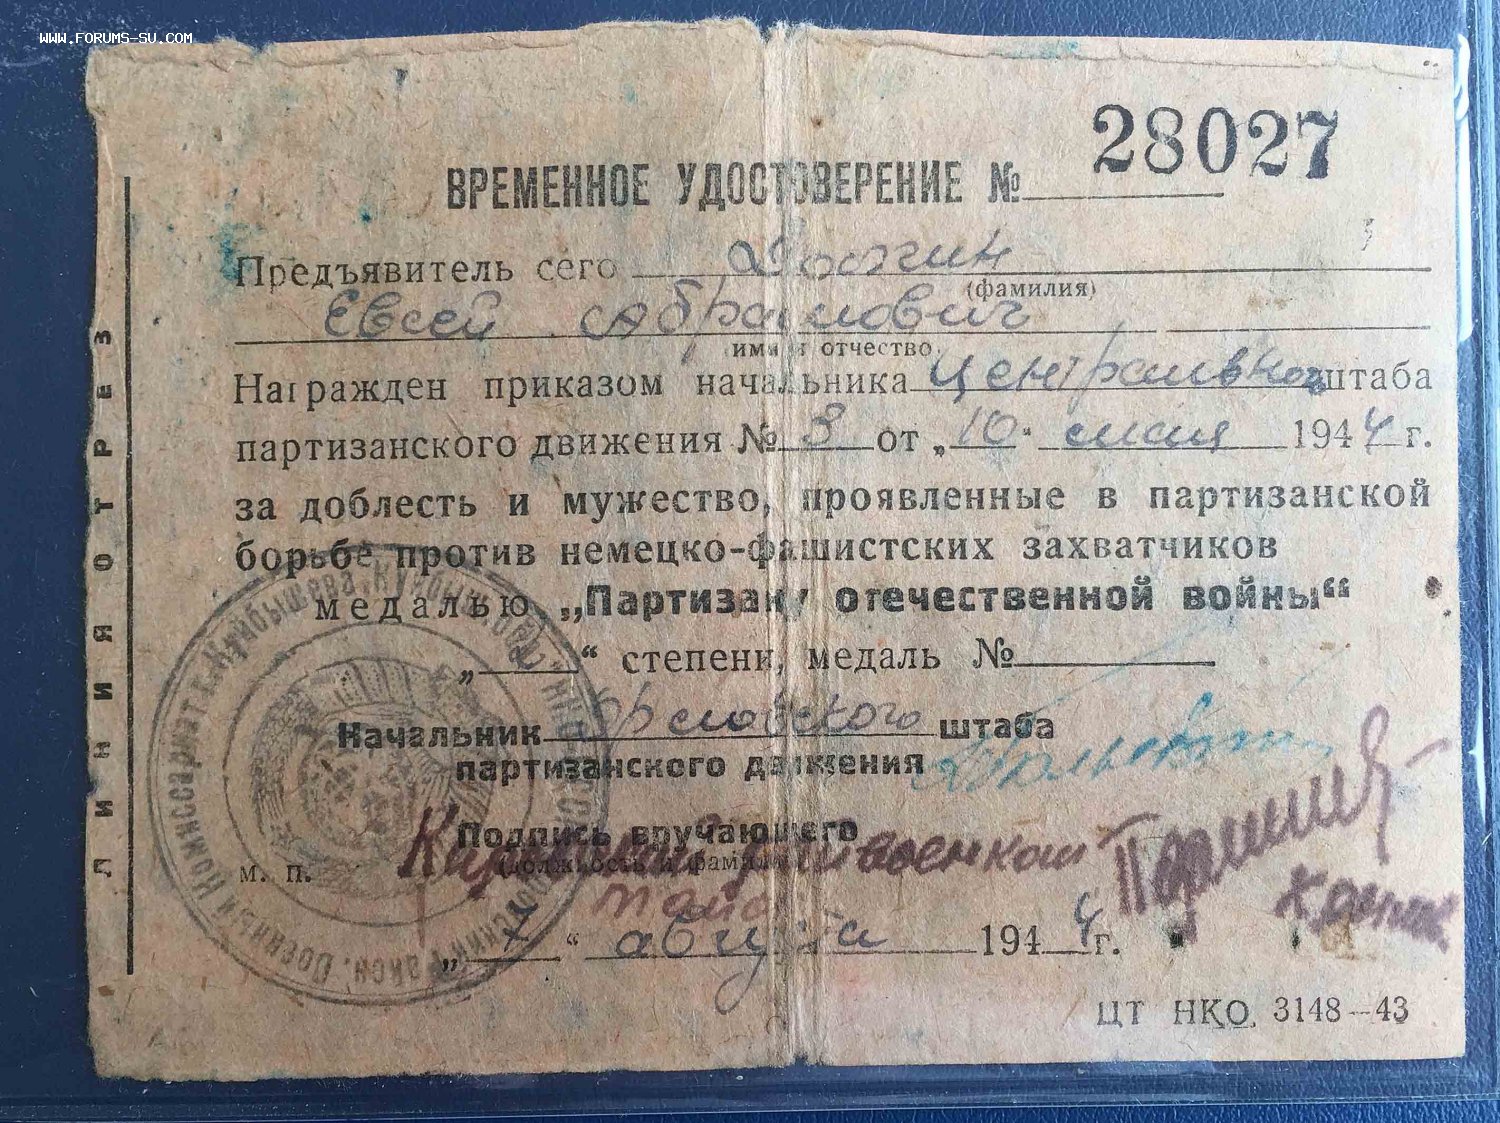 WWW.FORUMS-SU.COM
28027
ВРЕМЕННОЕ УДОСТОВЕРЕНИЕ №
Предъявитель сего
(фамилия)
Евсей Абрамович
имя и отчество
Награжден приказом начальника Центрального штаба
партизанского движения № 3 от „10" 1944 г.
за доблесть и мужество, проявленные в партизанской
борьбе против немецко-фашистских захватчиков
медалью „Партизану отечественной войны“
„ “ степени, медаль №
Начальник Орловского штаба
партизанского движения
Подпись вручающего
(должность и фамилия)
военком
М. П.
„7“ августа 1944 г.
ЦТ НКО 3148—43
ЛИНИЯ ОТРЕЗ
Военный Комиссариат г. Куйбышева